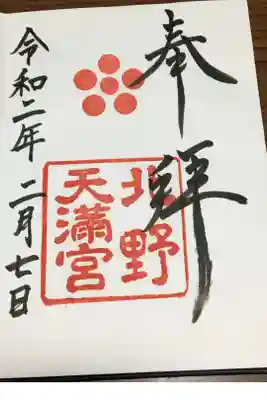 奉拝
北野
天満宮
令和二年 二月七日